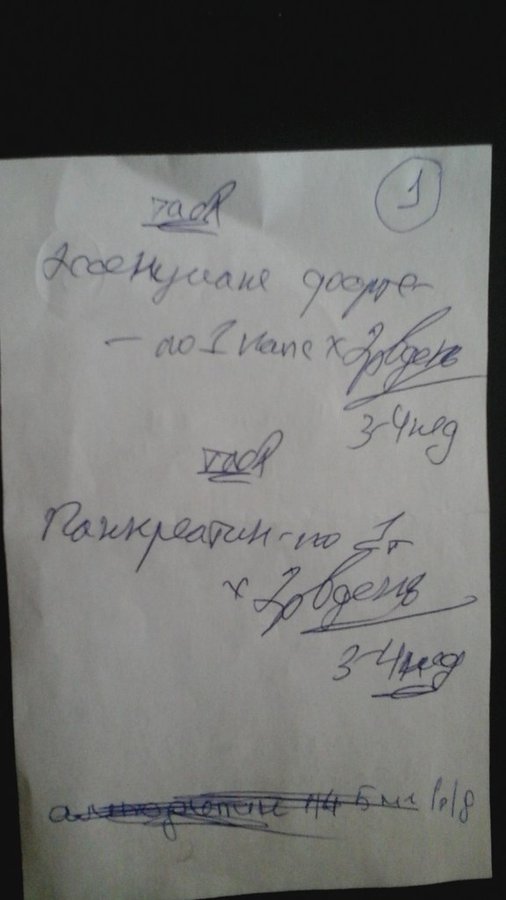 1
табл
Эссенциале форте-
- по 1 капс х 2р в день
3-4 нед
табл
Панкреатин - по 1т
х 2р в день
3-4 нед
5 мг 1р/д